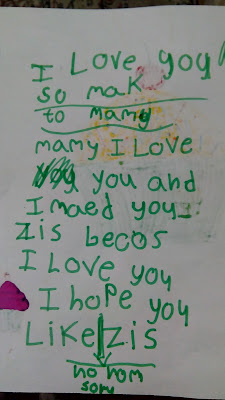 I Love yoy
so mak
to mamy
mamy I Love
you and
I maed you
zis becos
I Love you
I hope you
Like zis
no hom
sory